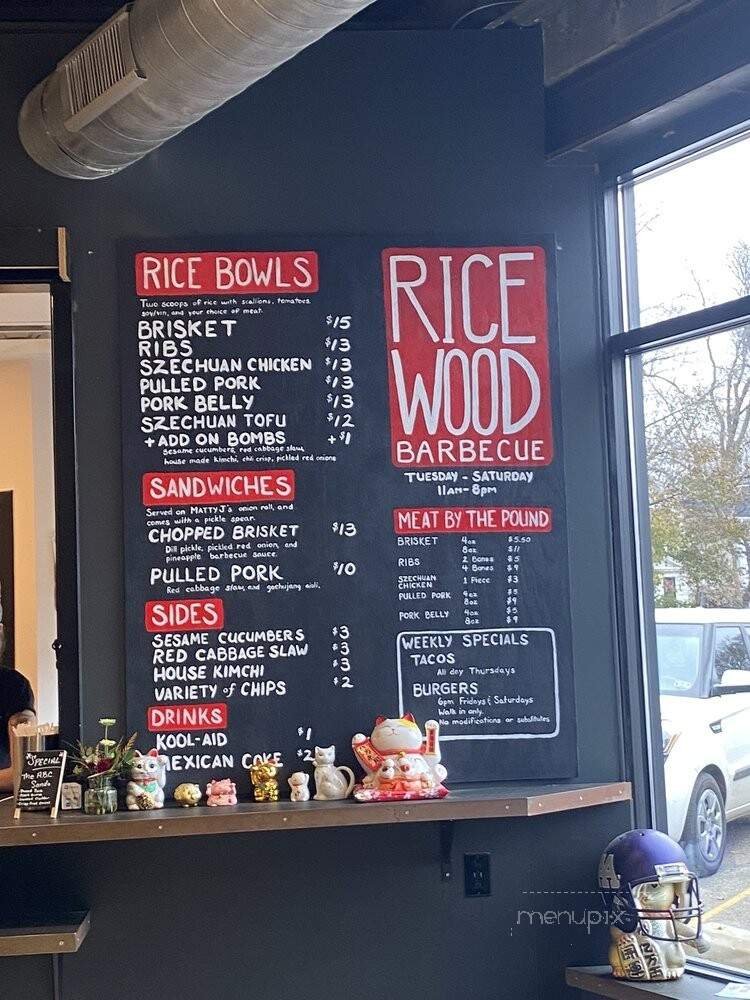 RICE BOWLS
Two scoops of rice with scallions, tomatoes,
and your choice of meat.
BRISKET $15
RIBS $13
SZECHUAN CHICKEN $13
PULLED PORK $13
PORK BELLY $13
SZECHUAN TOFU $12
+ ADD ON BOMBS +$1
Sesame cucumbers, red cabbage slaw,
house made kimchi, chili crisp, pickled red onions
SANDWICHES
Served on MATTY J's onion roll, and
comes with a pickle spear.
CHOPPED BRISKET $13
Dill pickle, pickled red onion, and
pineapple barbecue sauce.
PULLED PORK $10
Red cabbage slaw, and gochujang aioli.
SIDES
SESAME CUCUMBERS $3
RED CABBAGE SLAW $3
HOUSE KIMCHI $3
VARIETY of CHIPS $2
DRINKS
KOOL-AID $1
MEXICAN COKE $2
RICE
WOOD
BARBECUE
TUESDAY - SATURDAY
11AM-8PM
MEAT BY THE POUND
BRISKET 4oz $5.50
8oz $11
RIBS 2 Bones $5
4 Bones $9
SZECHUAN
CHICKEN 1 Piece $3
PULLED PORK 4oz $5
8oz $9
PORK BELLY 4oz $5
8oz $9
WEEKLY SPECIALS
TACOS
All day Thursdays
BURGERS
6pm Fridays & Saturdays
Walk in only.
No modifications or substitutes
SPECIAL
The A.B.C.
Sando
A
menupix